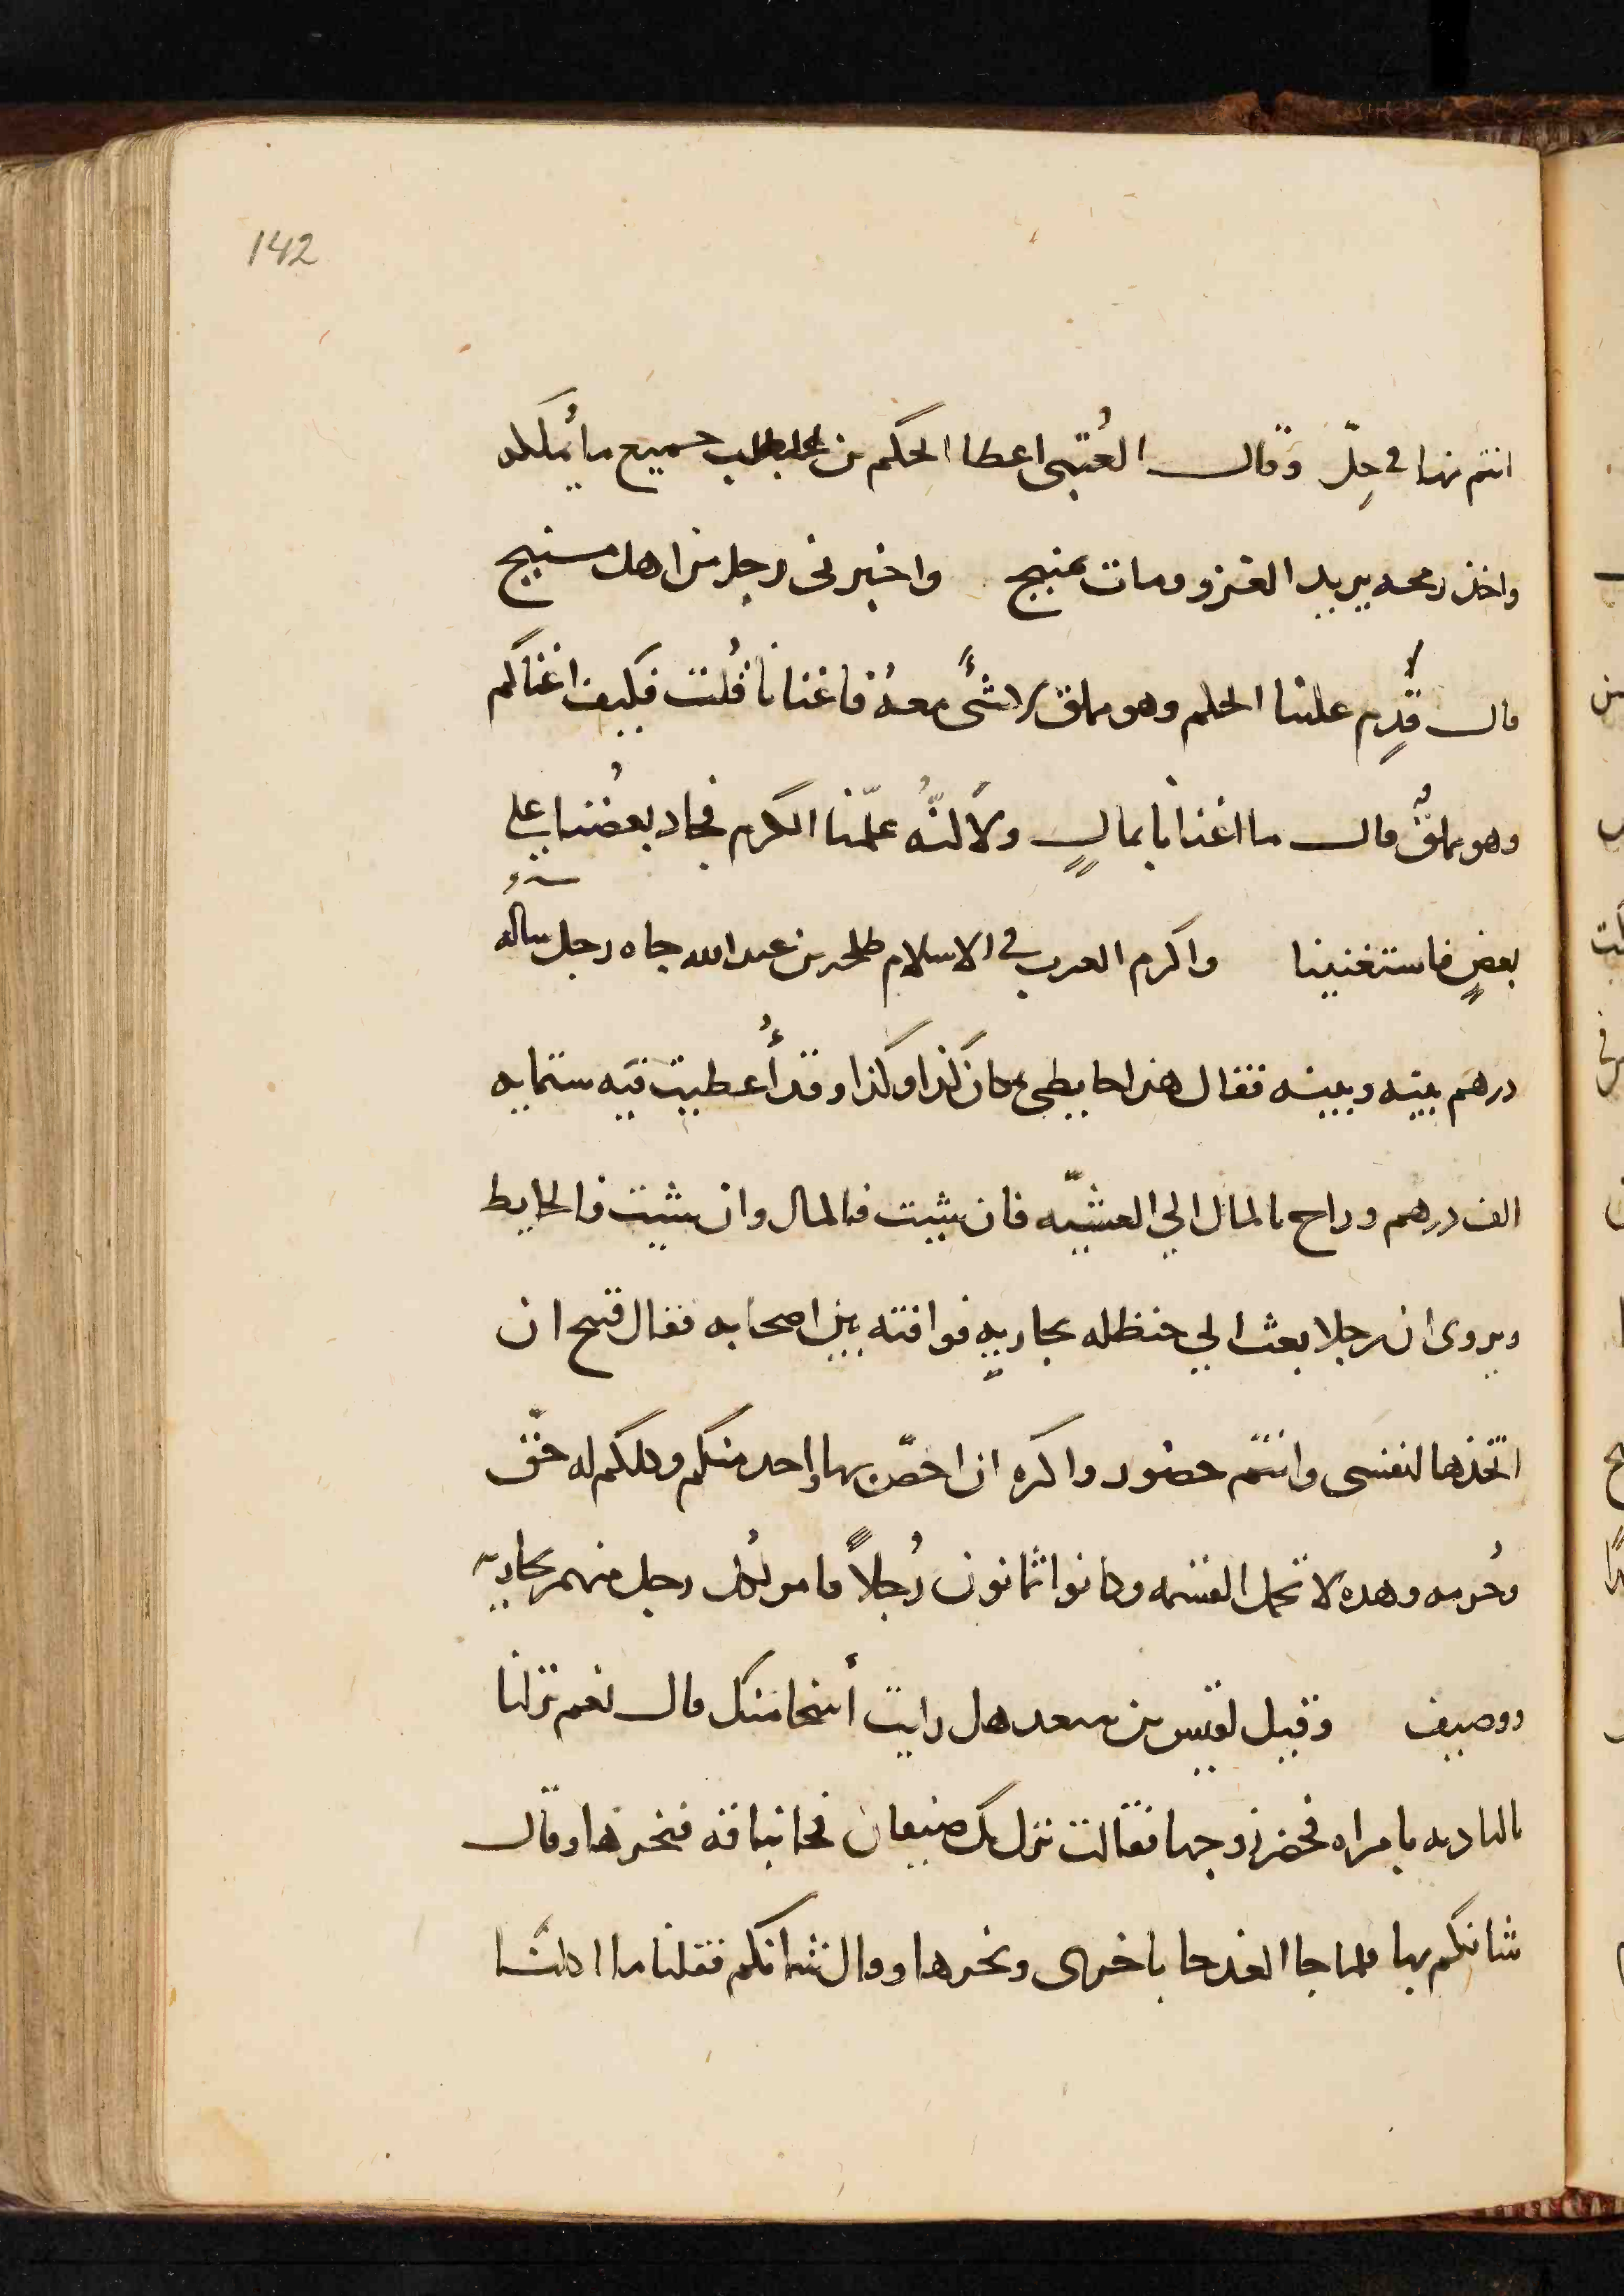 142
انتم منها في حِلّ وقال العُتبى اعطا الحكم بن المطلب جميع ما يُملكه
واخذ رمحه يريد الغزو ومات بمنبج واخبرنى رجل من اهل منبج
قال قَدِم علينا الحكم وهو مملق لا شئَ معهُ فاغنانا فُلت فكيف اغناكم
وهو مملقٌ قال ما اغنانا بمالٍ ولاكنّهُ علّمنا الكرم فجاد بعضُنا على
بعضٍ فاستغنينا واكرم العرب في الاسلام طلحه بن عبد الله جاه رجل ساله
درهم بينه وبينه فقال هذا حايطى بمكان كذا وكذا وقد أُعطيت فيه ستمايه
الف درهم وراح بالمال الي العشيّه فان شيت فالمال وان شيت فالحايط
ويروى ان رجلا بعث الي حنظله بجاريهٍ فوافته بين اصحابه فقال قبيح ان
اتّخذها لنفسى وانتم حضور واكره ان اخصّ بها واحد منكم وكلكم له حقّ
وحُرمه وهذه لا تحمل القسمه وكانوا ثمانون رُجلاً فامر لكُل رجل منهم بجاريه
ووصيف وقيل لقيس بن سعد هل رايت أسخا منك قال نعم نزلنا
بالباديه بامراه فحضر زوجها فقالت نزل بك ضيفان فجا بناقه فنحرها وقال
شانكم بها فلما جا الغد جا باخرى ونحرها وقال شانكم فقلنا ما اكلنا